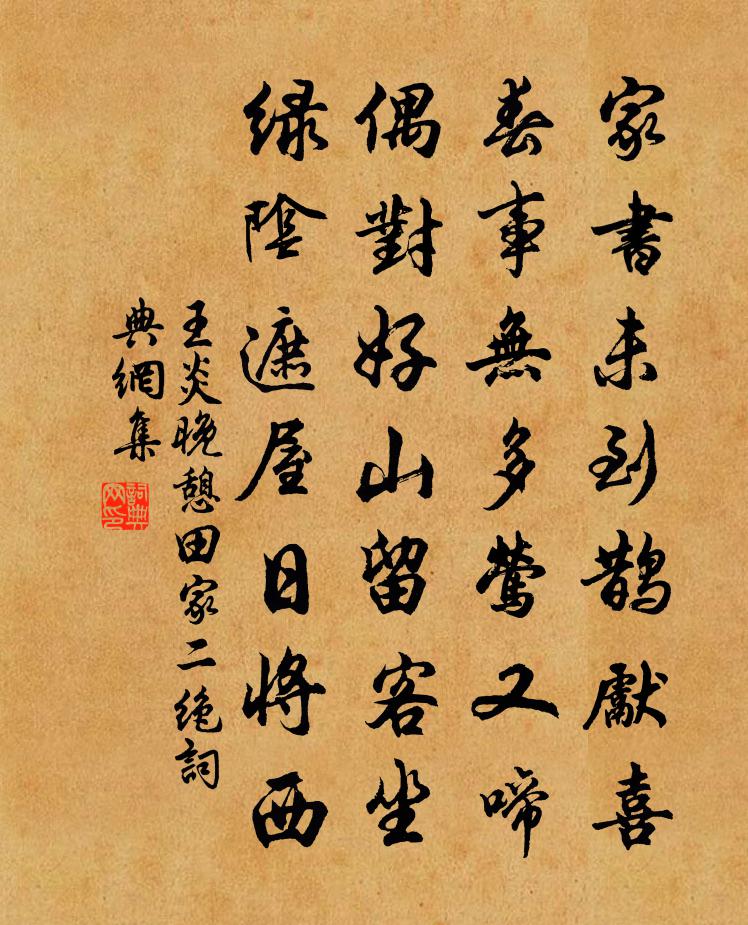 家書未到鵲獻喜
春事無多鶯又啼
偶對好山留客坐
緑陰遮屋日將西
王炎晚憩田家二绝詞
典網集
詞典
网印